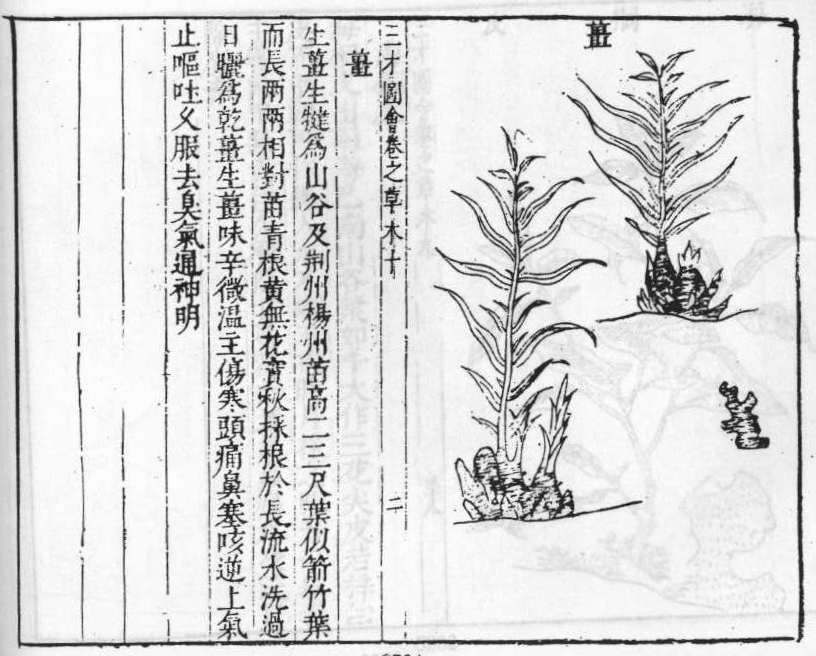 薑
三才圖會卷之草木十
二
薑
生薑生犍為山谷及荆州楊州苗高二三尺葉似箭竹葉
而長兩兩相對苗青根黃無花實秋採根於長流水洗過
日曬為乾薑生薑味辛微溫主傷寒頭痛鼻塞咳逆上氣
止嘔吐乂服去臭氣通神明